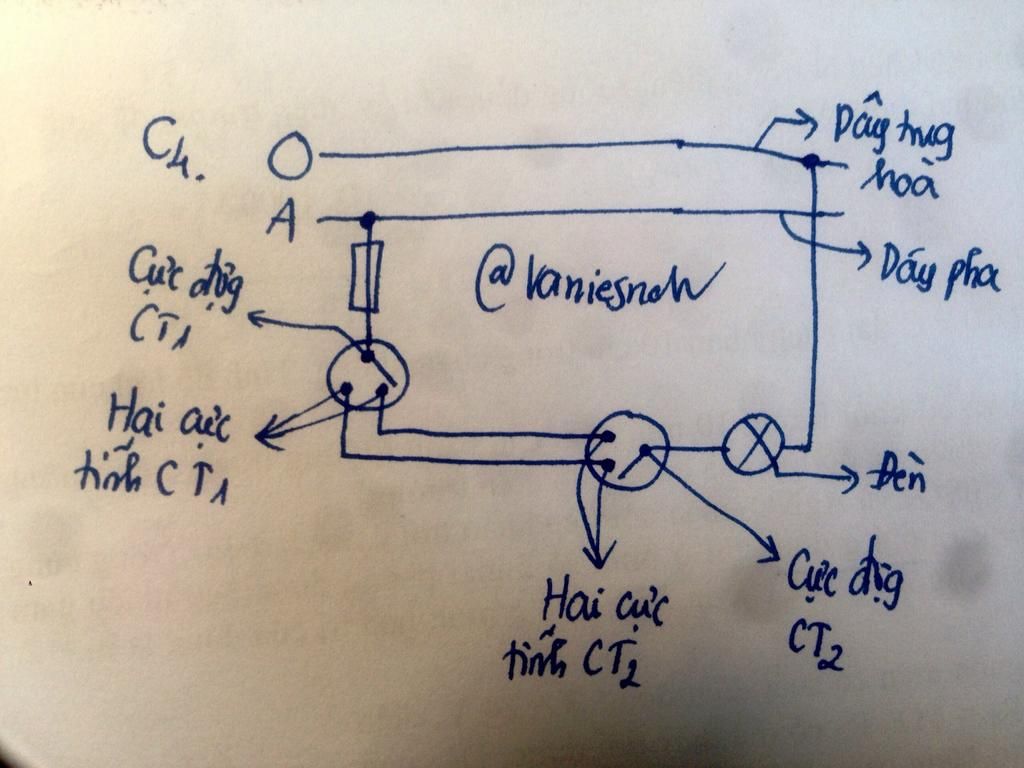 C4.
O
Dây trug
hoà
A
Dây pha
@vaniesnoh
Cực độg
CT1
Hai cực
tĩnh CT1
Đèn
Hai cực
tĩnh CT2
Cực độg
CT2